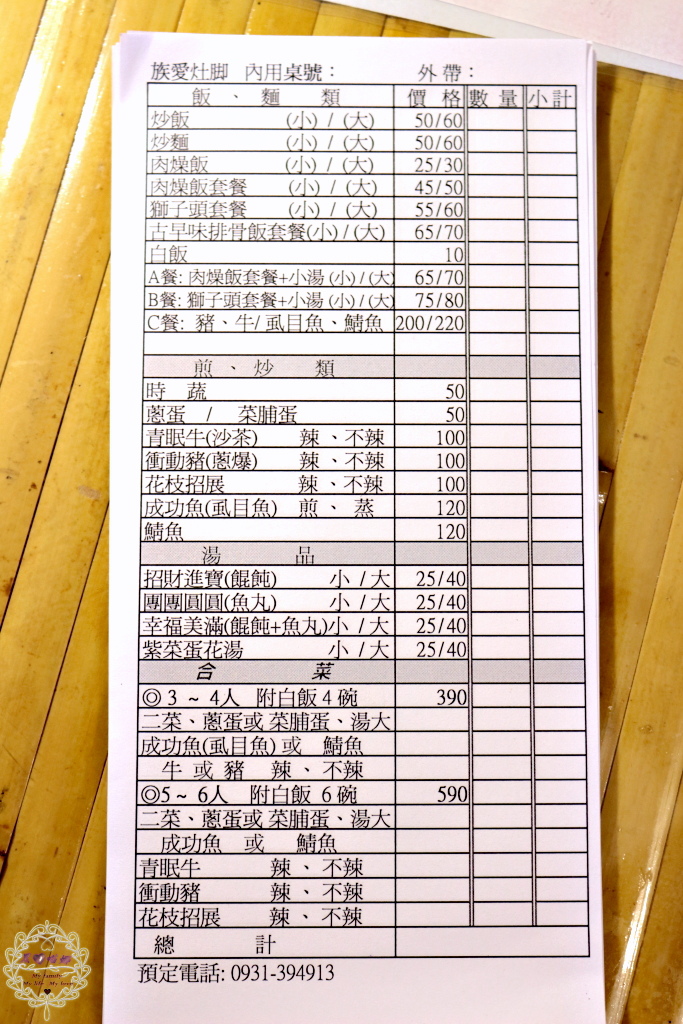 族愛灶脚 內用桌號： 外帶：
飯、麵 類 價 格 數 量 小計
炒飯 (小) / (大) 50/60
炒麵 (小) / (大) 50/60
肉燥飯 (小) / (大) 25/30
肉燥飯套餐 (小) / (大) 45/50
獅子頭套餐 (小) / (大) 55/60
古早味排骨飯套餐(小) / (大) 65/70
白飯 10
A餐: 肉燥飯套餐+小湯 (小) / (大) 65/70
B餐: 獅子頭套餐+小湯 (小) / (大) 75/80
C餐: 豬、牛/ 虱目魚、鯖魚 200/220
煎、炒 類
時 蔬 50
蔥蛋 / 菜脯蛋 50
青眠牛(沙茶) 辣、不辣 100
衝動豬(蔥爆) 辣、不辣 100
花枝招展 辣、不辣 100
成功魚(虱目魚) 煎、 蒸 120
鯖魚 120
湯 品
招財進寶(餛飩) 小 / 大 25/40
團團圓圓(魚丸) 小 / 大 25/40
幸福美滿(餛飩+魚丸) 小 / 大 25/40
紫菜蛋花湯 小 / 大 25/40
合 菜
◎3 ~ 4人 附白飯 4 碗 390
二菜、蔥蛋或 菜脯蛋、湯大
成功魚(虱目魚) 或 鯖魚
牛 或 豬 辣、不辣
◎5 ~ 6人 附白飯 6 碗 590
二菜、蔥蛋或 菜脯蛋、湯大
成功魚 或 鯖魚
青眠牛 辣、不辣
衝動豬 辣、不辣
花枝招展 辣、不辣
總 計
預定電話: 0931-394913
My family
My life My love